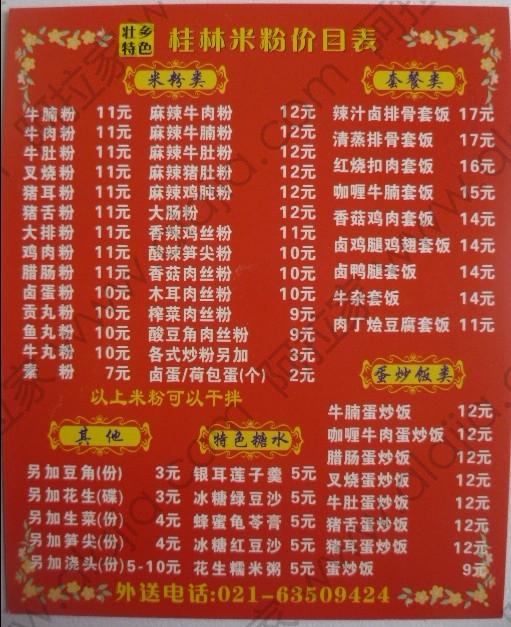 壮乡特色
桂林米粉价目表
米粉类
牛腩粉 11元
牛肉粉 11元
牛肚粉 11元
叉烧粉 11元
猪耳粉 11元
猪舌粉 11元
大排粉 11元
鸡肉粉 11元
腊肠粉 11元
卤蛋粉 10元
贡丸粉 10元
鱼丸粉 10元
牛丸粉 10元
素 粉 7元
麻辣牛肉粉 12元
麻辣牛腩粉 12元
麻辣牛肚粉 12元
麻辣猪肚粉 12元
麻辣鸡肫粉 12元
大肠粉 12元
香辣鸡丝粉 11元
酸辣笋尖粉 10元
香菇肉丝粉 10元
木耳肉丝粉 10元
榨菜肉丝粉 9元
酸豆角肉丝粉 9元
各式炒粉另加 3元
卤蛋/荷包蛋(个) 2元
以上米粉可以干拌
套餐类
辣汁卤排骨套饭 17元
清蒸排骨套饭 17元
红烧扣肉套饭 16元
咖喱牛腩套饭 15元
香菇鸡肉套饭 14元
卤鸡腿鸡翅套饭 14元
卤鸭腿套饭 14元
牛杂套饭 14元
肉丁烩豆腐套饭 11元
蛋炒饭类
牛腩蛋炒饭 12元
咖喱牛肉蛋炒饭 12元
腊肠蛋炒饭 12元
叉烧蛋炒饭 12元
牛肚蛋炒饭 12元
猪舌蛋炒饭 12元
猪耳蛋炒饭 12元
蛋炒饭 9元
其他
另加豆角(份) 3元
另加花生(碟) 3元
另加生菜(份) 4元
另加笋尖(份) 4元
另加浇头(份) 5-10元
特色糖水
银耳莲子羹 5元
冰糖绿豆沙 5元
蜂蜜龟苓膏 5元
冰糖红豆沙 5元
花生糯米粥 5元
外送电话:021-63509424